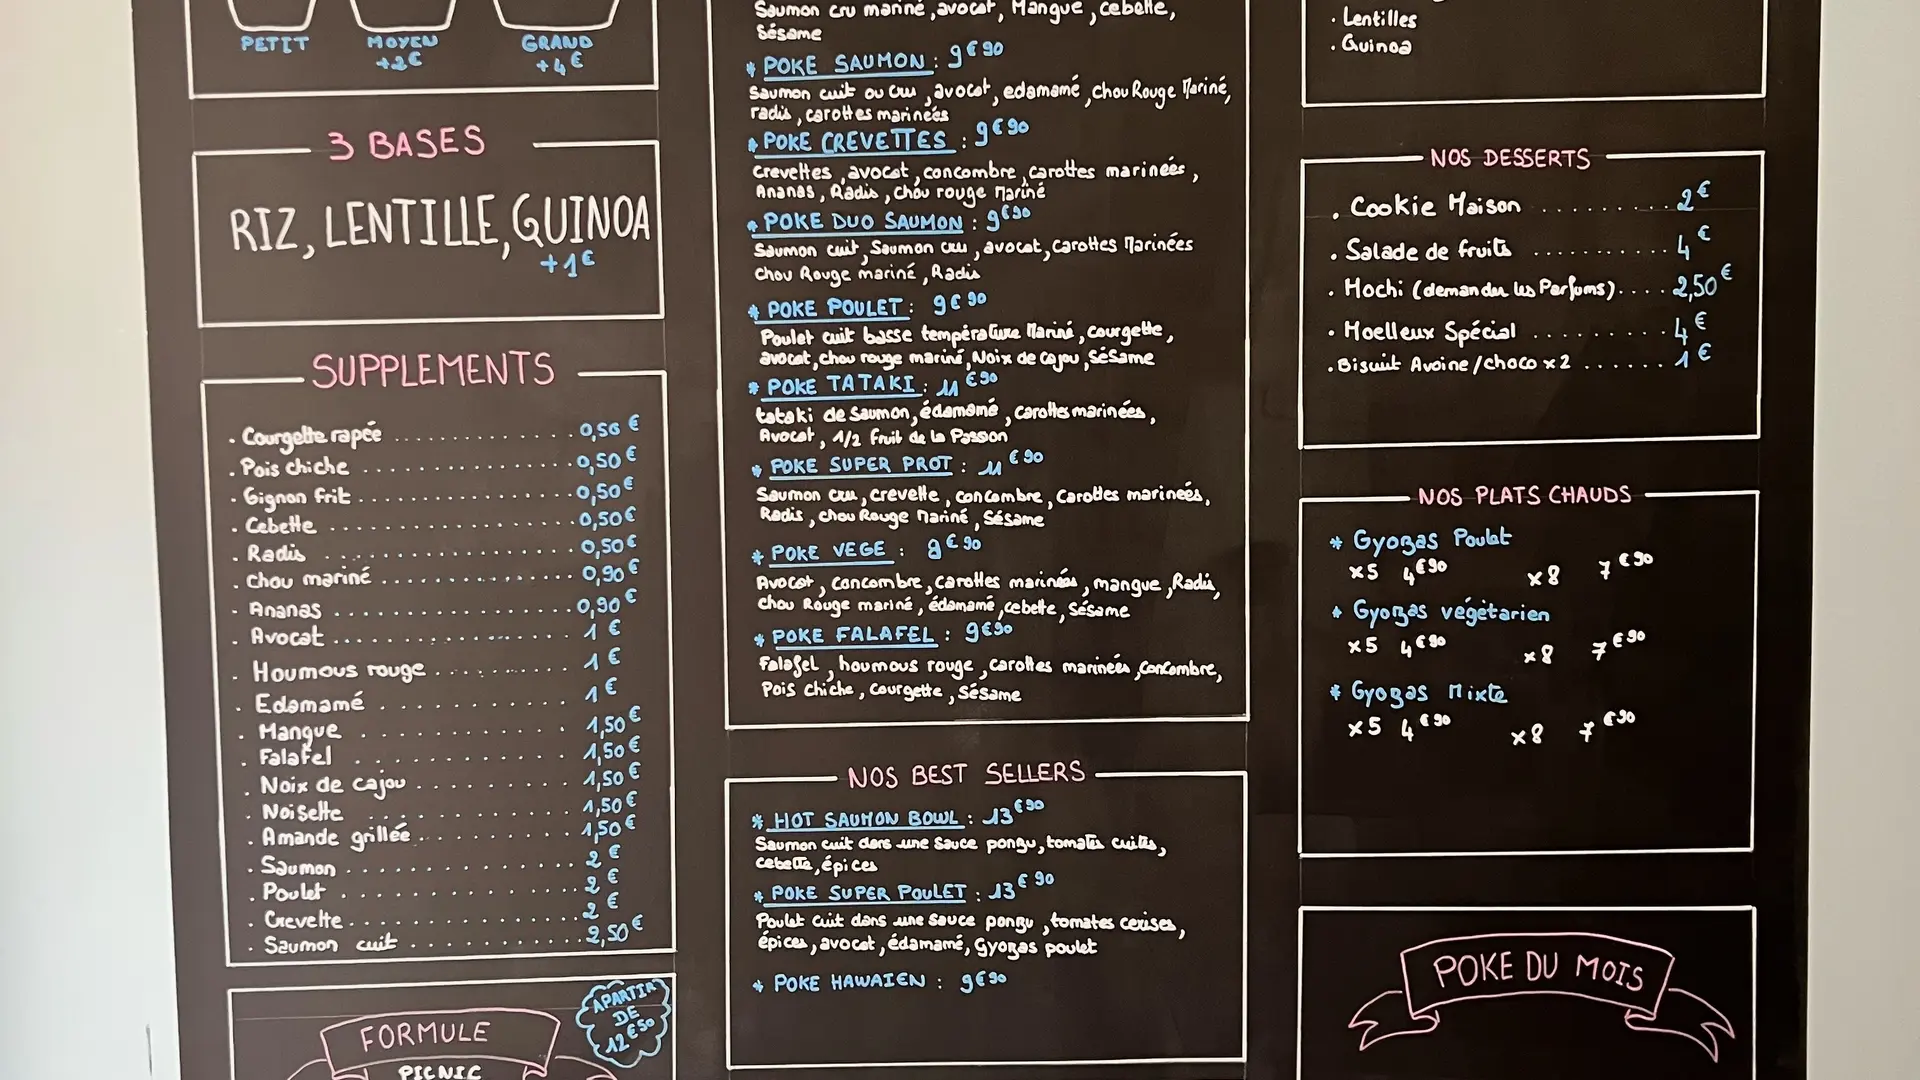 PETIT
MOYEN
+2€
GRAND
+4€
3 BASES
RIZ, LENTILLE, QUINOA
+1€
SUPPLEMENTS
. Courgette rapée ............. 0,50 €
. Pois chiche ............. 0,50 €
. Gignon frit ............. 0,50 €
. Cebette ............. 0,50 €
. Radis ............. 0,50 €
. Chou mariné ............. 0,90 €
. Ananas ............. 0,90 €
. Avocat ............. 1 €
. Houmous rouge ............. 1 €
. Edamamé ............. 1 €
. Mangue ............. 1,50 €
. Falafel ............. 1,50 €
. Noix de cajou ............. 1,50 €
. Noisette ............. 1,50 €
. Amande grillée ............. 1,50 €
. Saumon ............. 2 €
. Poulet ............. 2 €
. Crevette ............. 2 €
. Saumon cuit ............. 2,50 €
APARTIR
DE
12€50
FORMULE
PICNIC
Saumon cru mariné, avocat, Mangue, cebette,
Sésame
* POKE SAUMON : 9€90
Saumon cuit ou cru, avocat, edamamé, chou Rouge Mariné,
radis, carottes marinées
* POKE CREVETTES : 9€90
Crevettes, avocat, concombre, carottes marinées,
Ananas, Radis, chou rouge Mariné
* POKE DUO SAUMON : 9€90
Saumon cuit, Saumon cru, avocat, Carottes Marinées
Chou Rouge mariné, Radis
* POKE POULET : 9€90
Poulet cuit basse température Mariné, courgette,
avocat, chou rouge mariné, Noix de cajou, Sésame
* POKE TATAKI : 11€90
tataki de Saumon, édamamé, carottes marinées,
Avocat, 1/2 Fruit de la Passion
* POKE SUPER PROT : 11€90
Saumon cru, crevette, concombre, Carottes marinées,
Radis, chou Rouge Mariné, Sésame
* POKE VEGE : 9€90
Avocat, concombre, carottes marinées, mangue, Radis,
chou Rouge mariné, édamamé, cebette, Sésame
* POKE FALAFEL : 9€90
Falafel, houmous rouge, carottes marinées, concombre,
Pois chiche, Courgette, Sésame
NOS BEST SELLERS
* HOT SAUMON BOWL : 13€90
Saumon cuit dans une Sauce ponzu, tomates cuites,
cebette, épices
* POKE SUPER POULET : 13€90
Poulet cuit dans une sauce ponzu, tomates cerises,
épices, avocat, édamamé, Gyozas poulet
* POKE HAWAIEN : 9€90
. Lentilles
. Quinoa
NOS DESSERTS
. Cookie Maison ......... 2€
. Salade de fruits .......... 4€
. Mochi (demander les Parfums).... 2,50€
. Moelleux Spécial ......... 4€
. Biscuit Avoine/choco x2 ...... 1€
NOS PLATS CHAUDS
* Gyozas Poulet
x5 4€90 x8 7€90
* Gyozas végétarien
x5 4€90 x8 7€90
* Gyozas Mixte
x5 4€90 x8 7€90
POKE DU MOIS